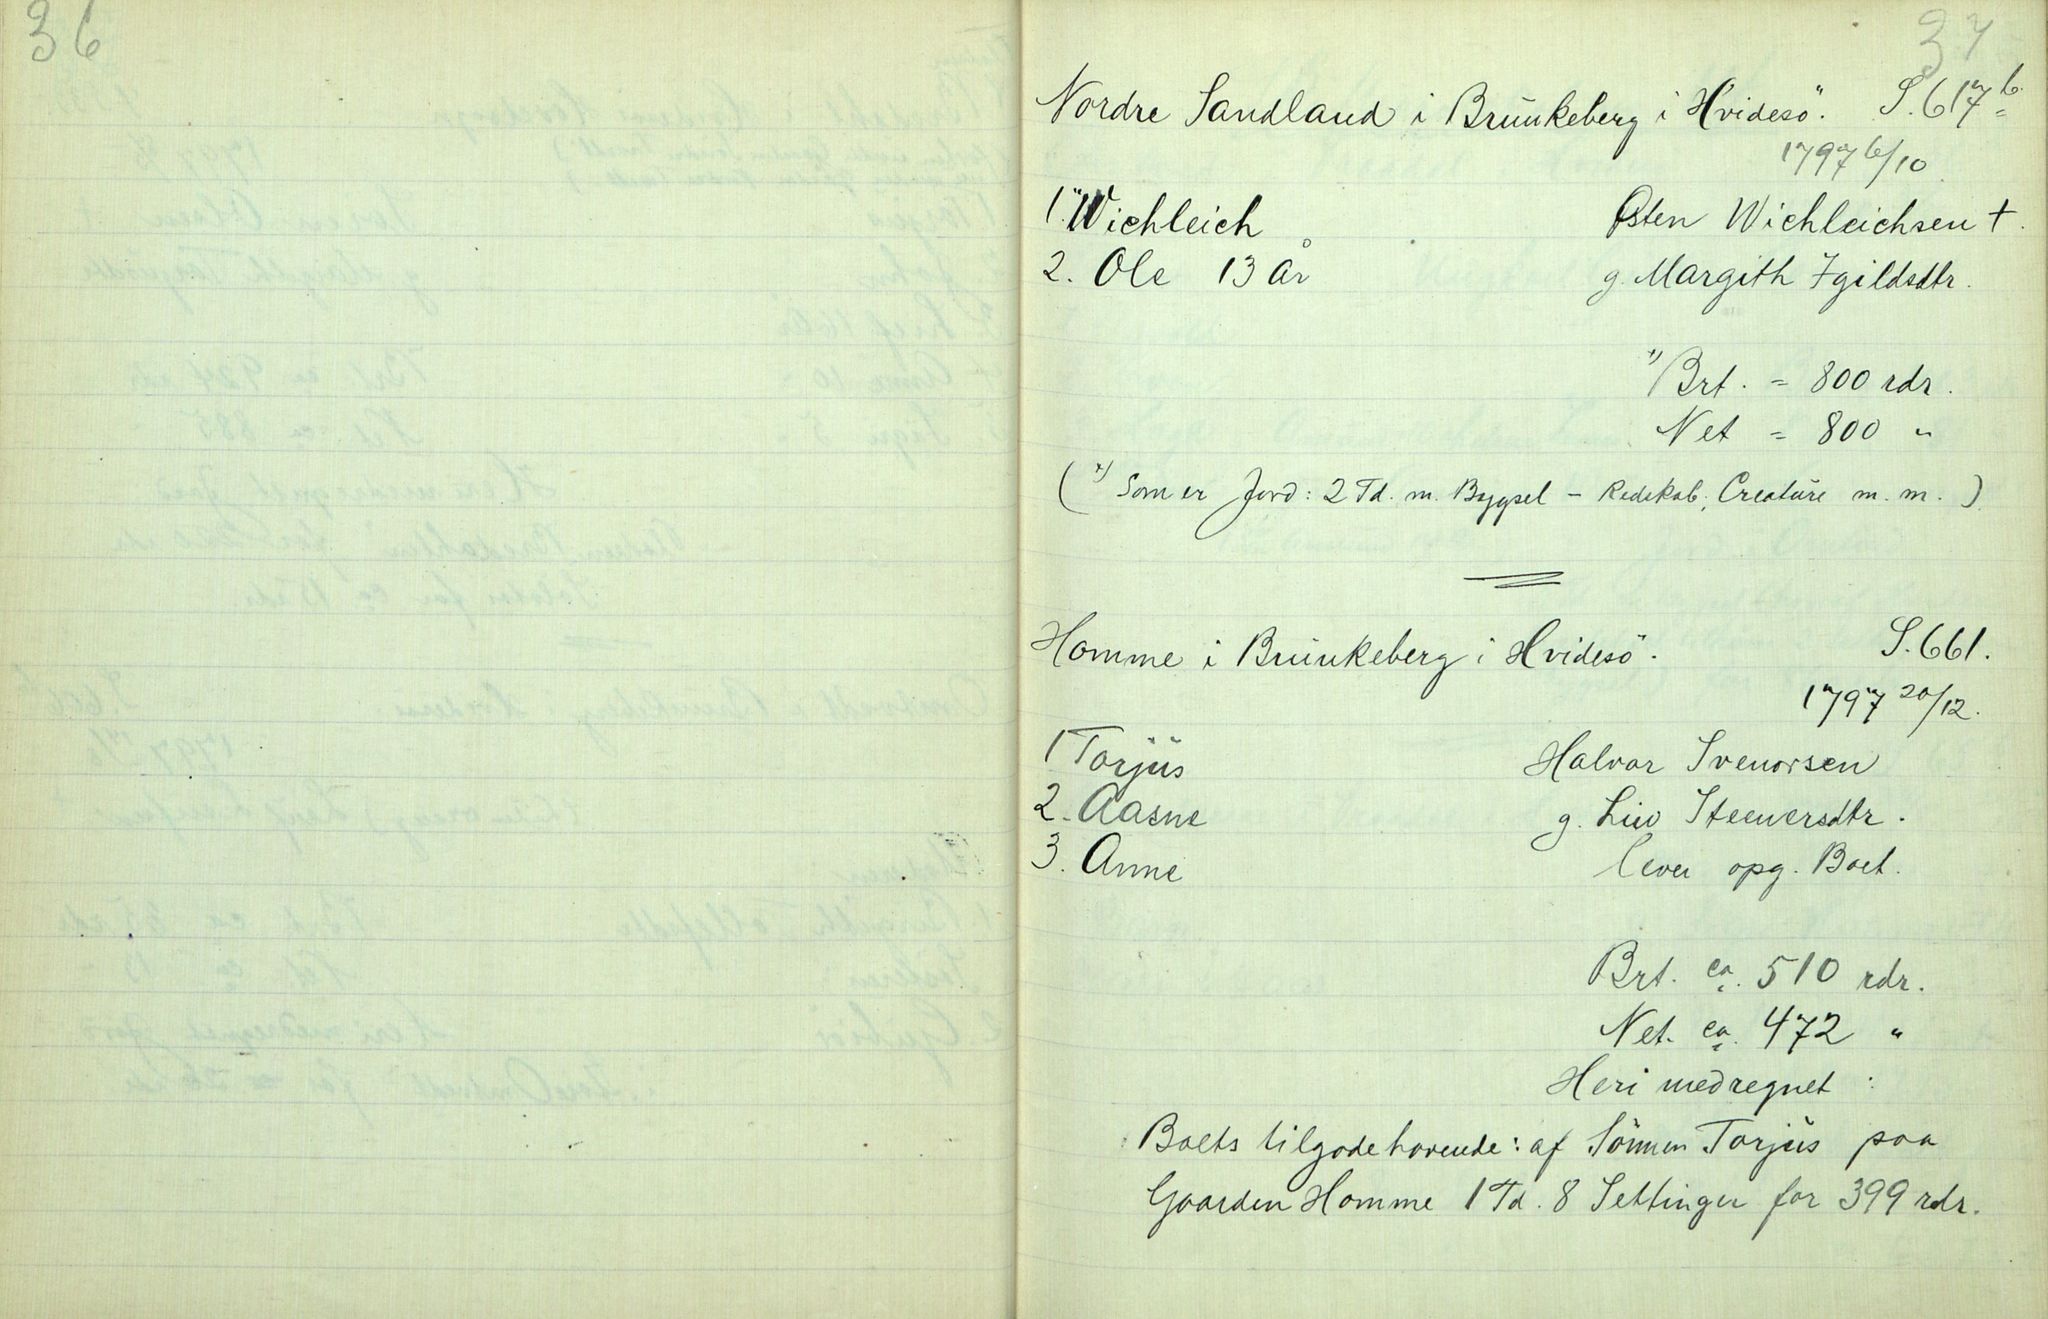 36
37
Nordre Sandland i Brunkeberg i Hvidesö. S. 617 b.
1797 6/10
1. Wichleich Østen Wichleichsen †.
2. Ole 13 År g. Margith Igildsdtr.
x) Brt. = 800 rdr.
Net = 800 "
( x) Som er Jord: 2 Td. m. Bygsel - Redskab, Creature m. m. )
Homme i Brunkeberg i Hvidesö. S. 661.
1797 20/12.
1 Torjus Halvor Svenorsen
2. Aasne g. Liv Steenersdtr.
3. Anne lever opg. Boet.
Brt. ca. 510 rdr.
Net. ca. 472 "
Heri medregnet:
Boets tilgodehavende: af Sönnen Torjus paa
Gaarden Homme 1 Td. 8 Settinger for 399 rdr.